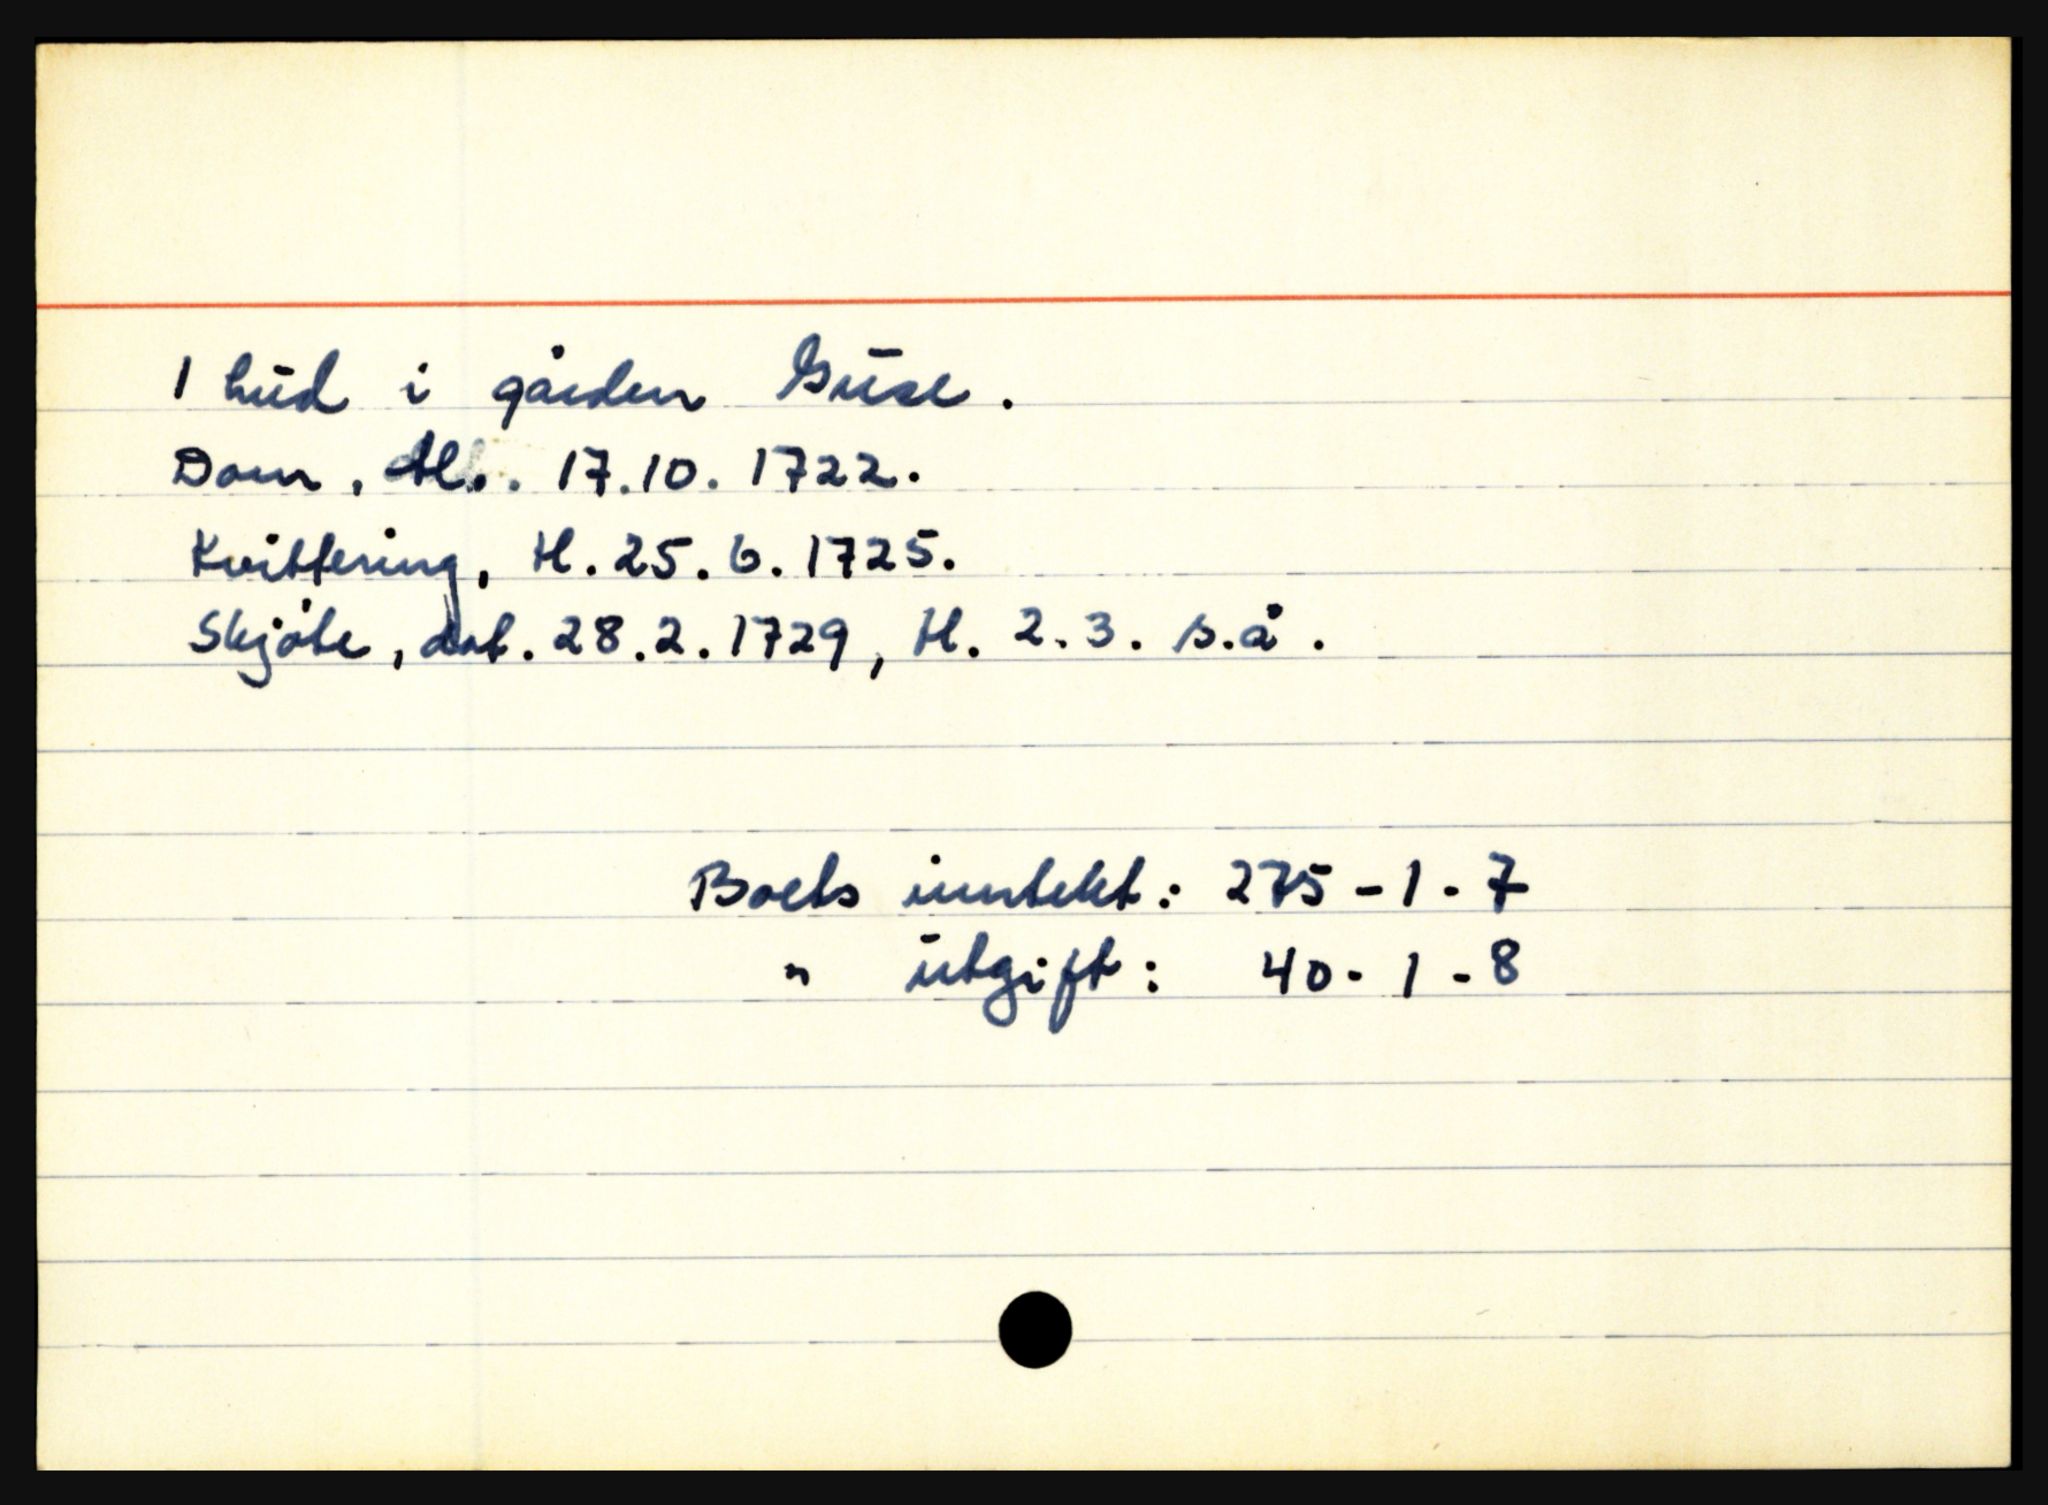 1 hud i gården Guse.
Dom, tl. 17.10.1722.
Kvittering, tl. 25.6.1725.
Skjöte, dat. 28.2.1729, tl. 2.3. s.å.
Boets inntekt: 275-1-7
" utgift: 40-1-8